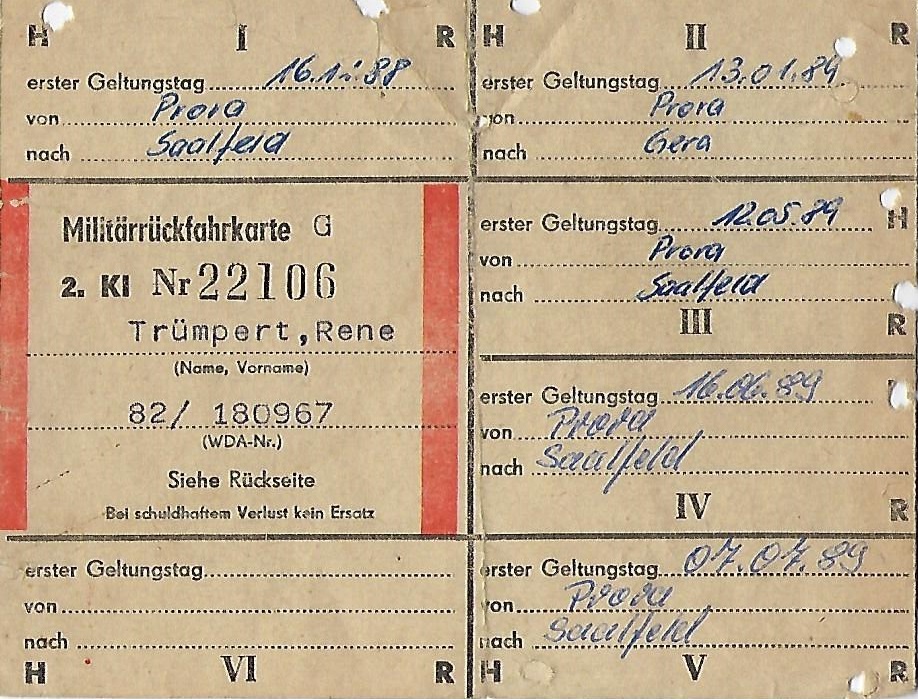 H I R
erster Geltungstag 16.12.88
von Prora
nach Saalfeld
H II R
erster Geltungstag 13.01.89
von Prora
nach Gera
Militärrückfahrkarte G
2. Kl Nr 22106
Trümpert, Rene
(Name, Vorname)
82/ 180967
(WDA-Nr.)
Siehe Rückseite
Bei schuldhaftem Verlust kein Ersatz
erster Geltungstag 12.05.89
H
von Prora
nach Saalfeld
III R
erster Geltungstag 16.06.89
von Prora
nach Saalfeld
IV R
erster Geltungstag
von
nach
H VI R
erster Geltungstag 07.07.89
von Prora
nach Saalfeld
H V R